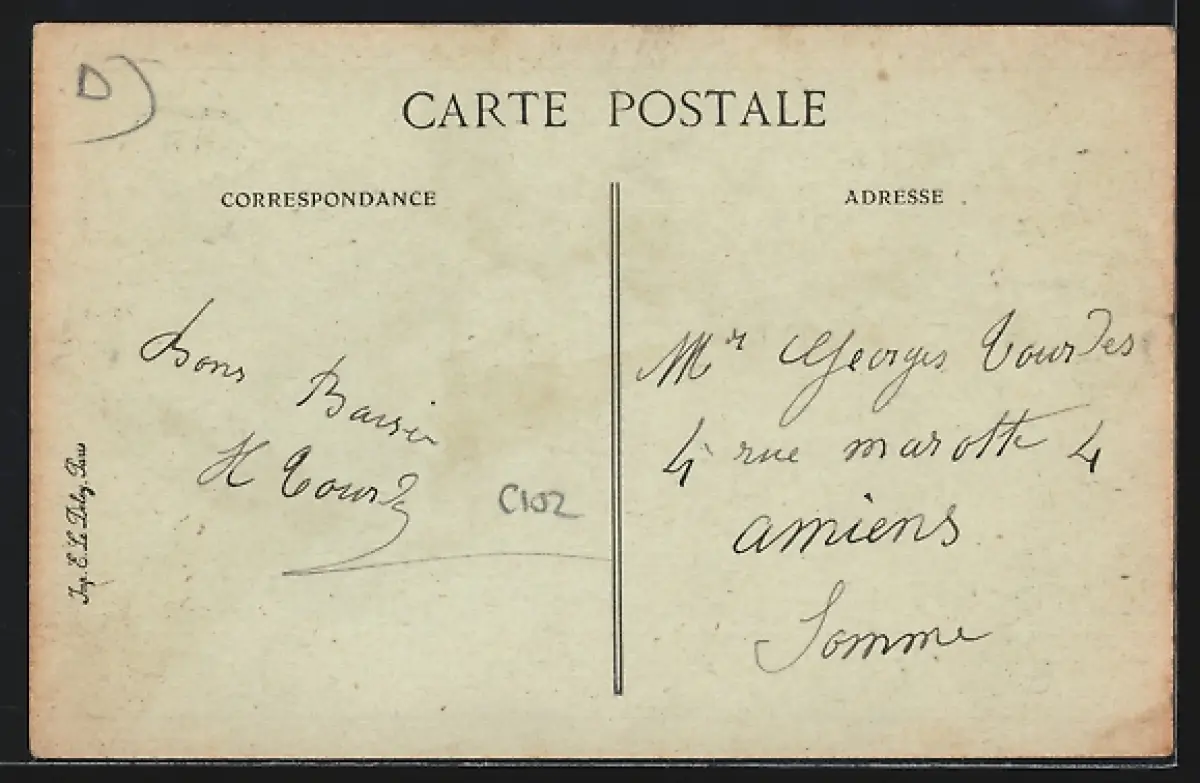 D
CARTE POSTALE
CORRESPONDANCE
Bons
Baisers
H Tourdes
C102
Imp. E. Le Deley, Paris
ADRESSE
Mr Georges Tourdes
4 rue marotte 4
amiens
Somme